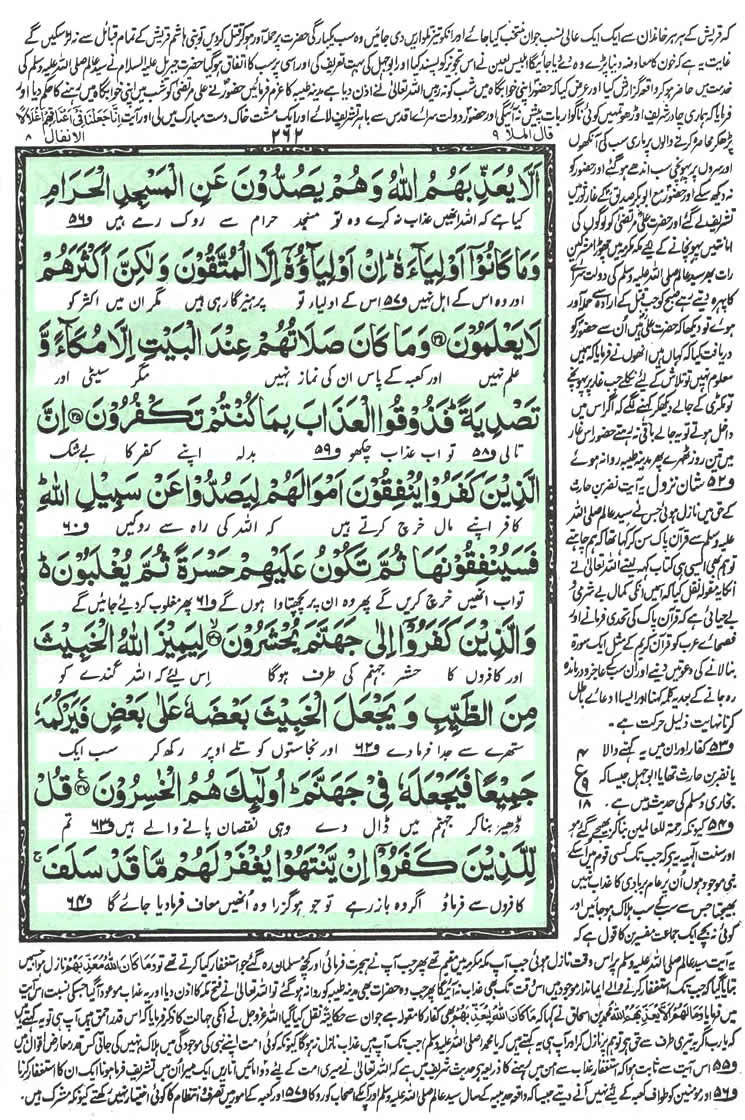 کہ قریش کے ہر ہر خاندان سے ایک ایک عالی نسب جوان منتخب کیا جائے اور انکو تیز تلواریں دی جائیں وہ سب یکبارگی حضرت پر حملہ آور ہو کر قتل کردیں تو بنی ہاشم قریش کے تمام قبائل سے نہ لڑ سکیں گے
غایت یہ ہے کہ خون کا معاوضہ دینا پڑے وہ دے دیا جائے گا ابلیس لعین نے اس تجویز کو پسند کیا اور ابوجہل کی بہت تعریف کی اور اسی پر سب کا اتفاق ہوگیا حضرت جبریل علیہ السلام نے سید عالم صلی اللہ علیہ وسلم کی
خدمت میں حاضر ہو کر واقعہ گزارش کیا اور عرض کیا کہ حضور اپنی خوابگاہ میں شب کو نہ رہیں اللہ تعالٰی نے اذن دیا ہے مدینہ طیبہ کا عزم فرمائیں حضور نے علی مرتضٰی کو شب میں اپنی خوابگاہ میں رہنے کا حکم دیا اور
فرمایا کہ ہماری چادر شریف اوڑھو تمہیں کوئی ناگوار بات پیش نہ آئیگی اور حضور دولت سرائے اقدس سے باہر تشریف لائے اور ایک مشت خاک دست مبارک میں لی اور آیت اِنَّا جَعَلْنَا فِیْ اَعْنَاقِهِمْ اَغْلَالًا
قال الملا ۹
۲۶۲
الانفال ۸
اَلَّا یُعَذِّبَهُمُ اللّٰهُ وَهُمْ یَصُدُّوْنَ عَنِ الْمَسْجِدِ الْحَرَامِ
کیا ہے کہ اللہ انھیں عذاب نہ کرے وہ تو مسجد حرام سے روک رہے ہیں و۵۶
وَمَا كَانُوْۤا اَوْلِیَآءَهٗ ؕ اِنْ اَوْلِیَآؤُهٗۤ اِلَّا الْمُتَّقُوْنَ وَلٰكِنَّ اَكْثَرَهُمْ
اور وہ اس کے اہل نہیں و۵۷ اس کے اولیاء تو پرہیزگار ہی ہیں مگر ان میں اکثر کو
لَا یَعْلَمُوْنَ ۝۳۴ وَمَا كَانَ صَلَاتُهُمْ عِنْدَ الْبَیْتِ اِلَّا مُكَآءً وَّ
علم نہیں اور کعبہ کے پاس ان کی نماز نہیں مگر سیٹی اور
تَصْدِیَةً ؕ فَذُوْقُوا الْعَذَابَ بِمَا كُنْتُمْ تَكْفُرُوْنَ ۝۳۵ اِنَّ
تالی و۵۸ تو اب عذاب چکھو و۵۹ بدلہ اپنے کفر کا بےشک
الَّذِیْنَ كَفَرُوْا یُنْفِقُوْنَ اَمْوَالَهُمْ لِیَصُدُّوْا عَنْ سَبِیْلِ اللّٰهِ ؕ
کافر اپنے مال خرچ کرتے ہیں کہ اللہ کی راہ سے روکیں و۶۰
فَسَیُنْفِقُوْنَهَا ثُمَّ تَكُوْنُ عَلَیْهِمْ حَسْرَةً ثُمَّ یُغْلَبُوْنَ ؕ
تو اب انھیں خرچ کریں گے پھر وہ ان پر پچھتاوا ہوں گے و۶۱ پھر مغلوب کردیئے جائیں گے
وَالَّذِیْنَ كَفَرُوْۤا اِلٰى جَهَنَّمَ یُحْشَرُوْنَ ۝۳۶ لِیَمِیْزَ اللّٰهُ الْخَبِیْثَ
اور کافروں کا حشر جہنم کی طرف ہوگا اس لیئے کہ اللہ گندے کو
مِنَ الطَّیِّبِ وَیَجْعَلَ الْخَبِیْثَ بَعْضَهٗ عَلٰى بَعْضٍ فَیَرْكُمَهٗ
ستھرے سے جدا فرما دے و۶۲ اور نجاستوں کو تلے اوپر رکھ کر سب ایک
جَمِیْعًا فَیَجْعَلَهٗ فِیْ جَهَنَّمَ ؕ اُولٰٓئِكَ هُمُ الْخٰسِرُوْنَ ۝۳۷ قُلْ
ڈھیر بنا کر جہنم میں ڈال دے وہی نقصان پانے والے ہیں و۶۳ تم
لِّلَّذِیْنَ كَفَرُوْۤا اِنْ یَّنْتَهُوْا یُغْفَرْ لَهُمْ مَّا قَدْ سَلَفَ ۚ
کافروں سے فرماؤ اگر وہ باز رہے تو جو ہو گزرا وہ انھیں معاف فرما دیا جائے گا و۶۴
پڑھ کر محاصرہ کرنے والوں پر ماری سب کی آنکھوں
اور سروں پر پہونچی سب اندھے ہوگئے اور حضور کو
نہ دیکھ سکے اور حضور مع ابوبکر صدیق کے غار ثور میں
تشریف لے گئے اور حضرت علی مرتضٰی کو لوگوں کی
امانتیں پہونچانے کے لیئے مکہ مکرمہ میں چھوڑا مشرکین
رات بھر سید عالم صلی اللہ علیہ وسلم کی دولت سرائے
کا پہرہ دیتے رہے صبح کو جب قتل کے ارادہ سے حملہ آور
ہوئے تو دیکھا کہ حضرت علی ہیں اُن سے حضور کو
دریافت کیا کہ کہاں ہیں انھوں نے فرمایا کہ ہمیں
معلوم نہیں تو تلاش کے لئے نکلے جب غار پر پہونچے
تو مکڑی کے جالے دیکھ کر کہنے لگے کہ اگر اس میں
داخل ہوتے تو یہ جالے باقی نہ رہتے حضور اس غار
میں تین روز ٹھہرے پھر مدینہ طیبہ روانہ ہوئے
و۵۲ شان نزول یہ آیت نضر بن حارث
کے حق میں نازل ہوئی جس نے سید عالم صلی اللہ
علیہ وسلم سے قرآن پاک سن کر کہا تھا کہ ہم چاہتے
تو ہم بھی ایسی ہی کتاب کہہ لیتے اللہ تعالٰی نے
انکا یہ مقولہ نقل کیا کہ اس میں انکی کمال بے شرمی و
بےحیائی ہے کہ قرآن پاک کی تحدی فرمانے اور
فصحائے عرب کو قرآن کریم کے مثل ایک سورۃ
بنا لانے کی دعوتیں دینے اور ان سب کے عاجز و درماندہ
رہ جانے کے بعد یہ کلمہ کہنا اور ایسا ادعائے باطل
کرنا نہایت ذلیل حرکت ہے۔
و۵۳ کفار اور ان میں یہ کہنے والا
یا نضر بن حارث تھا یا ابوجہل جیسا کہ
بخاری و مسلم کی حدیث میں ہے۔
۴
ع
۹
۱۸
و۵۴ کیونکہ رحمۃ للعالمین بنا کر بھیجے گئے ہو
اور سنت الٰہیہ یہ ہے کہ جب تک کسی قوم میں اسکے
نبی موجود ہوں اُن پر عام بربادی کا عذاب نہیں
بھیجتا جس سے سب کے سب ہلاک ہو جائیں اور
کوئی نہ بچے ایک جماعت مفسرین کا قول ہے کہ
یہ آیت سید عالم صلی اللہ علیہ وسلم پر اس وقت نازل ہوئی جب آپ مکہ مکرمہ میں مقیم تھے پھر جب آپ نے ہجرت فرمائی اور کچھ مسلمان رہ گئے جو استغفار کیا کرتے تھے تو وَمَا كَانَ اللّٰهُ مُعَذِّبَهُمْ نازل ہوا جس میں
بتایا گیا کہ جب تک استغفار کرنے والے ایماندار موجود ہیں اس وقت تک بھی عذاب نہ آئیگا پھر جب وہ حضرات بھی مدینہ طیبہ کو روانہ ہو گئے تو اللہ تعالٰی نے فتح مکہ کا اذن دیا اور یہ عذاب موعود آگیا جسکی نسبت اس آیت
میں فرمایا وَمَا لَهُمْ اَلَّا یُعَذِّبَهُمُ اللّٰهُ محمد بن اسحاق نے کہا کہ مَا كَانَ اللّٰهُ لِیُعَذِّبَهُمْ بھی کفار کا مقولہ ہے جو ان سے حکایۃً نقل کیا گیا اللہ عزوجل نے انکی جہالت کا ذکر فرمایا کہ اس قدر احمق ہیں آپ ہی تو یہ کہتے ہیں
کہ یارب اگر یہ تیری طرف سے حق ہو تو ہم پر نازل کر اور آپ ہی یہ کہتے ہیں کہ یا محمد صلی اللہ علیہ وسلم جب تک آپ ہیں عذاب نازل نہ ہوگا کیونکہ کوئی امت اپنے نبی کی موجودگی میں ہلاک نہیں کی جاتی کس قدر معارض اقوال ہیں
و۵۵ اس آیت سے ثابت ہوا کہ استغفار عذاب سے امن میں رہنے کا ذریعہ ہے حدیث شریف میں ہے کہ اللہ تعالٰی نے میری امت کے لئے دو امانیں اتاریں ایک میرا ان میں تشریف فرما ہونا ایک ان کا استغفار کرنا
و۵۶ اور مومنین کو طواف کعبہ کے لئے نہیں آنے دیتے جیسا کہ واقعہ حدیبیہ کے سال سید عالم صلی اللہ علیہ وسلم اور آپکے اصحاب کو روکا و۵۷ اور کعبہ کے امور میں تصرف و انتظام کا کوئی اختیار نہیں رکھتے کیونکہ مشرک ہیں۔